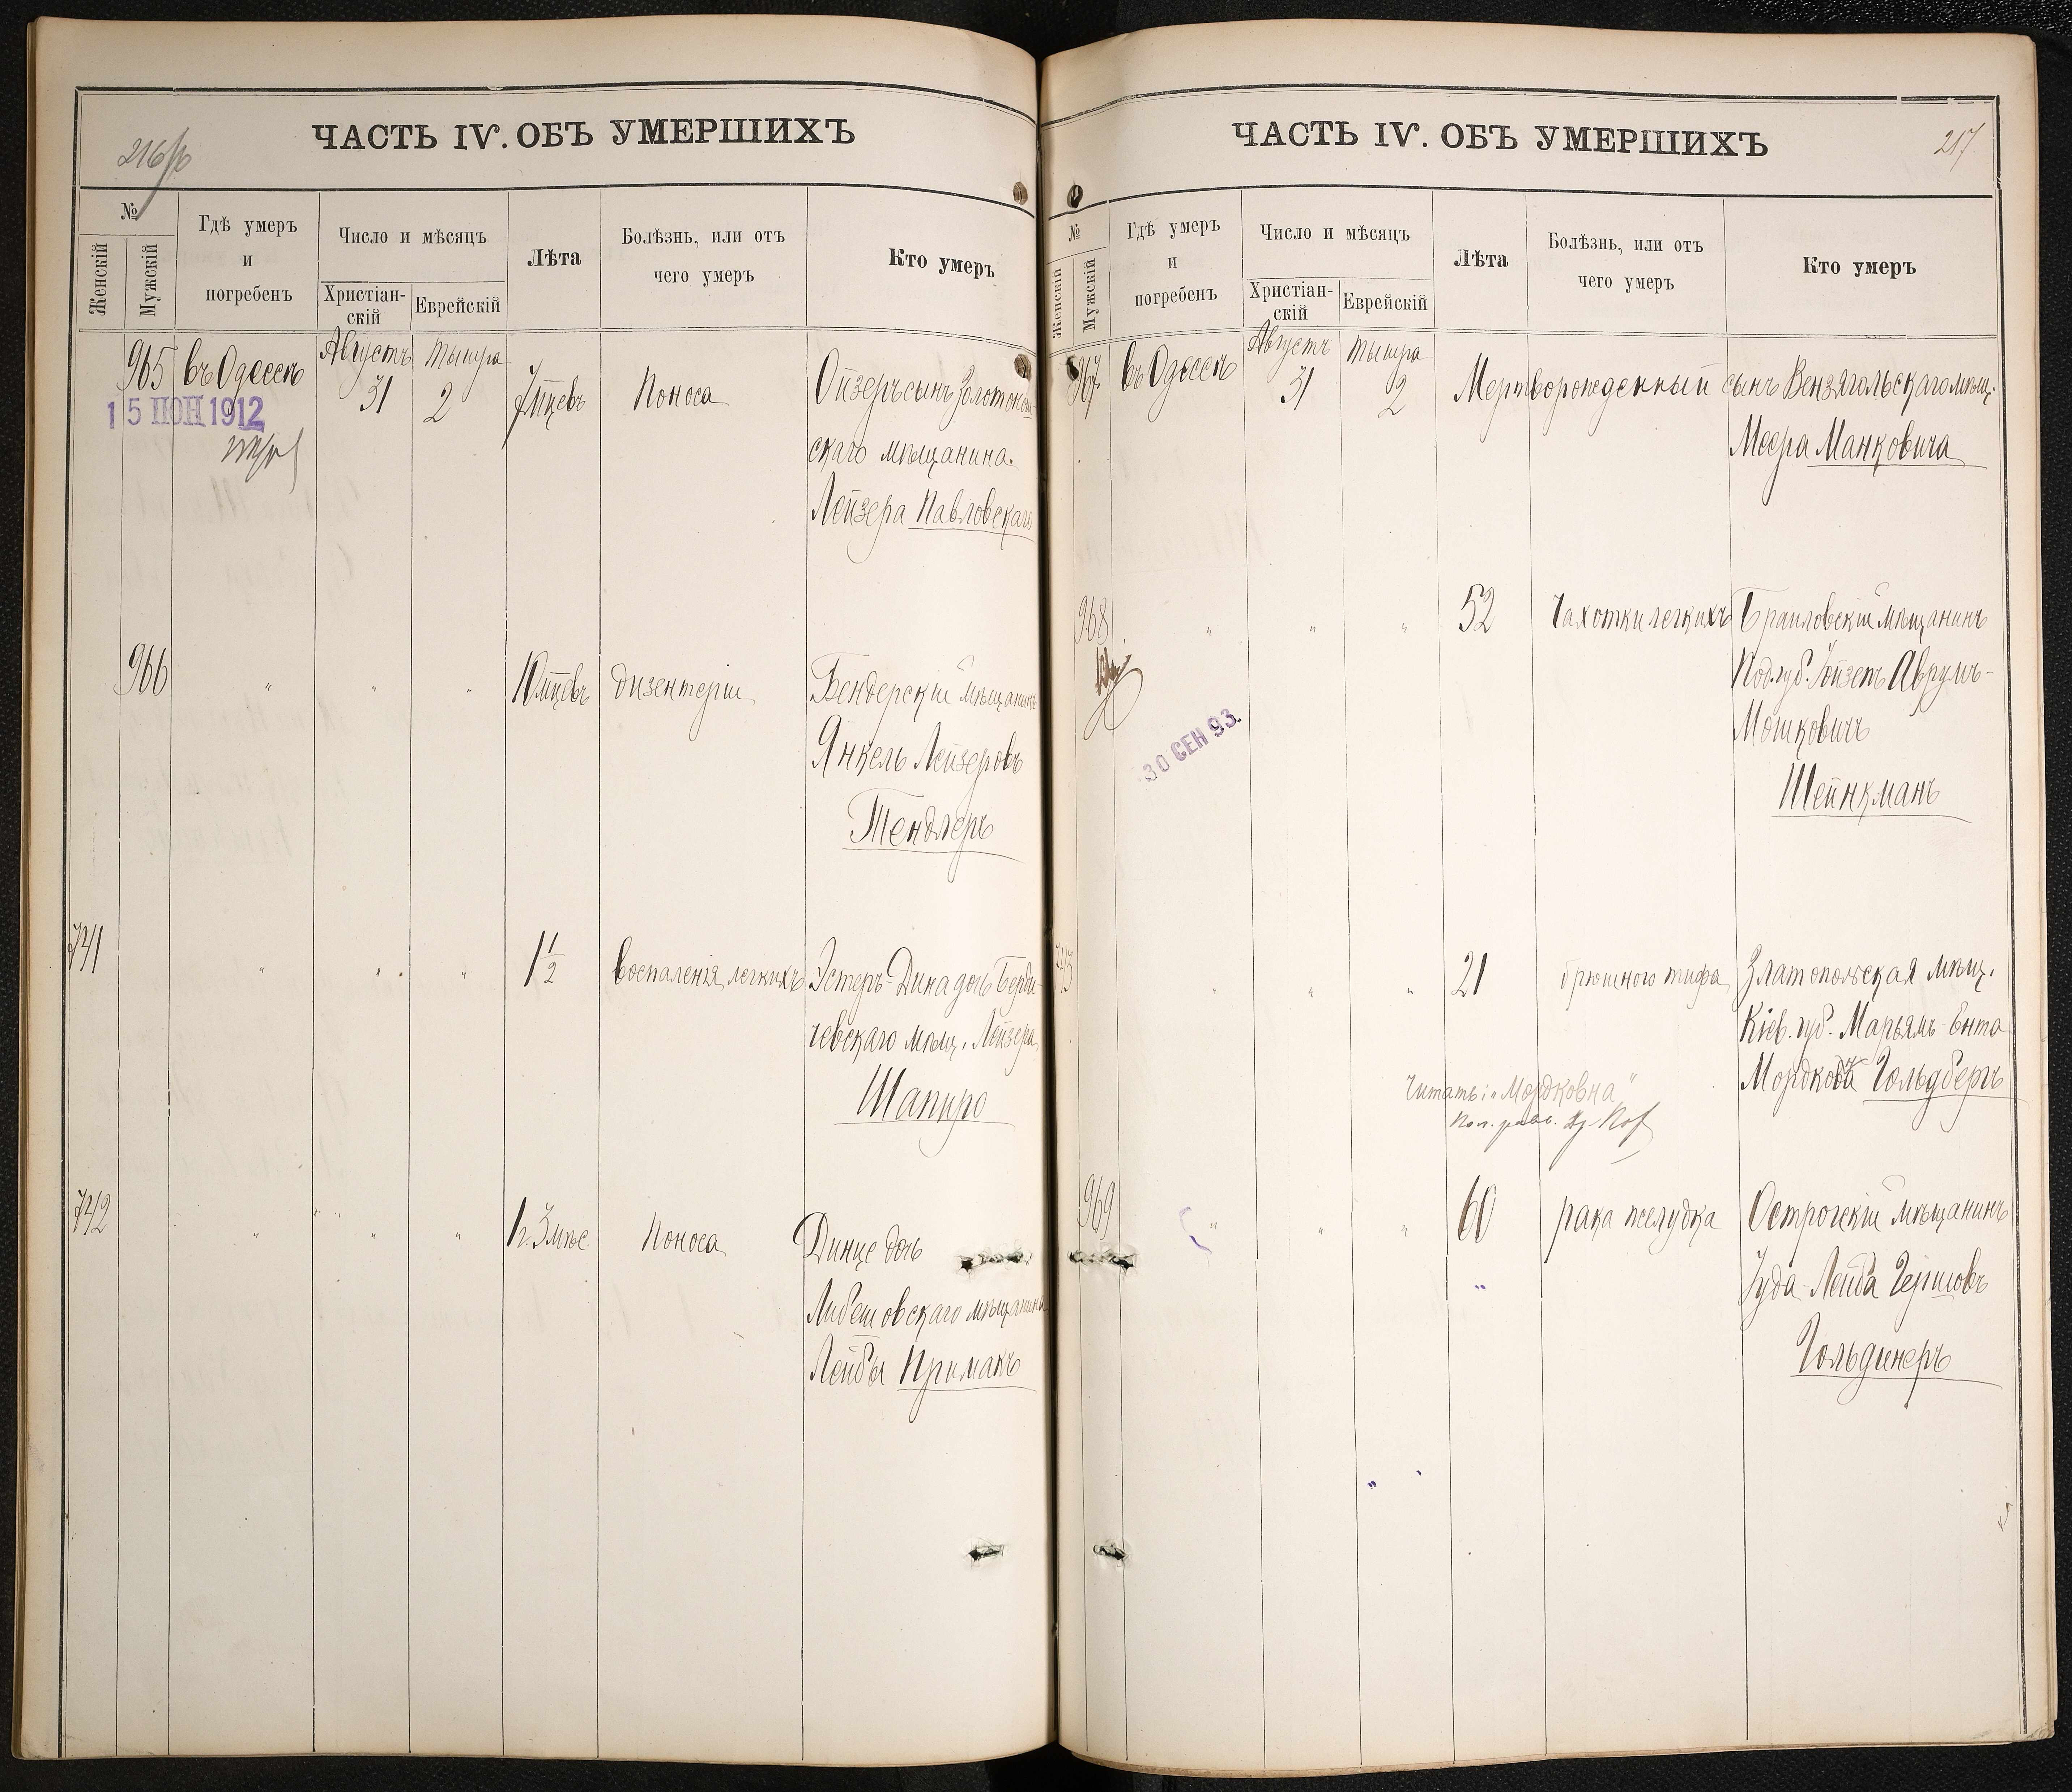 216
ЧАСТЬ IV. ОБЪ УМЕРШИХЪ
№
Женскій
Мужскій
Гдѣ умеръ
и
погребенъ
Число и мѣсяцъ
Христіан-
скій
Еврейскій
Лѣта
Болѣзнь, или отъ
чего умеръ
Кто умеръ
965 въ Одессѣ Августъ 31 Тишра 2 7 мцевъ Поноса Ойзеръ сынъ Золотонош-
15 ІЮН 1912
скаго мѣщанина
Лейзера Павловскаго
966 " " " 10 мцевъ дизентеріи Бендерскій мѣщанинъ
Янкель Лейзеровъ
Тендлеръ
741 " " " 1 1/2 воспаленія легкихъ Эстеръ-Дина дочь Берди-
чевскаго мѣщ. Лейзера
Шапиро
742 " " " 1 г. 3 мѣс. Поноса Динце дочь
Либешовскаго мѣщанина
Лейбы Примакъ
217
ЧАСТЬ IV. ОБЪ УМЕРШИХЪ
№
Женскій
Мужскій
Гдѣ умеръ
и
погребенъ
Число и мѣсяцъ
Христіан-
скій
Еврейскій
Лѣта
Болѣзнь, или отъ
чего умеръ
Кто умеръ
967 въ Одессѣ Августъ 31 Тишра 2 Мертворожденный сынъ Вензягольскаго мѣщ.
Меера Манковича
968 " " " 52 Чахотки легкихъ Браиловскій мѣщанинъ
Под. губ. Іойзепъ Аврумъ-
Мошковичъ
30 СЕН 93.
Шейнкманъ
743 " " " 21 брюшного тифа Златопольская мѣщ.
Кіев. губ. Марьямъ-Ента
Мордкова Гольдбергъ
Читать: „Мордковна"
969 " " " 60 рака желудка Острогскій мѣщанинъ
Іуда-Лейба Гершовъ
Гольдинеръ